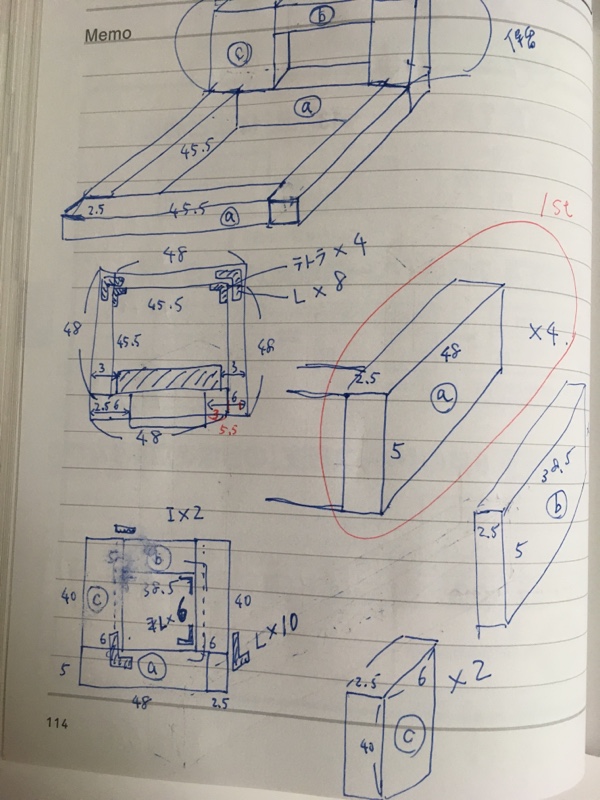 Memo
b
c
a
45.5
2.5
45.5
a
1st
48
テトラ×4
L×8
45.5
48
45.5
48
3
3
2.5
6
6
3
5.5
48
×4
2.5
48
a
5
38.5
b
2.5
5
I×2
5
b
40
c
38.5
Z L×6
40
6
6
L×10
a
5
48
2.5
2.5
6
×2
40
c
114